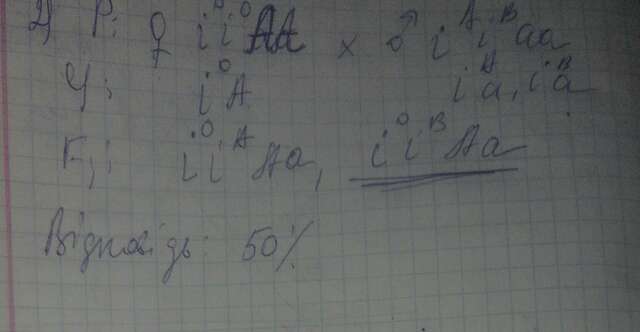 2) P: ♀ i⁰i⁰AA × ♂ iᴬiᴮaa
G: i⁰A iᴬa, iᴮa
F₁: i⁰iᴬAa, i⁰iᴮAa
Відповідь: 50%